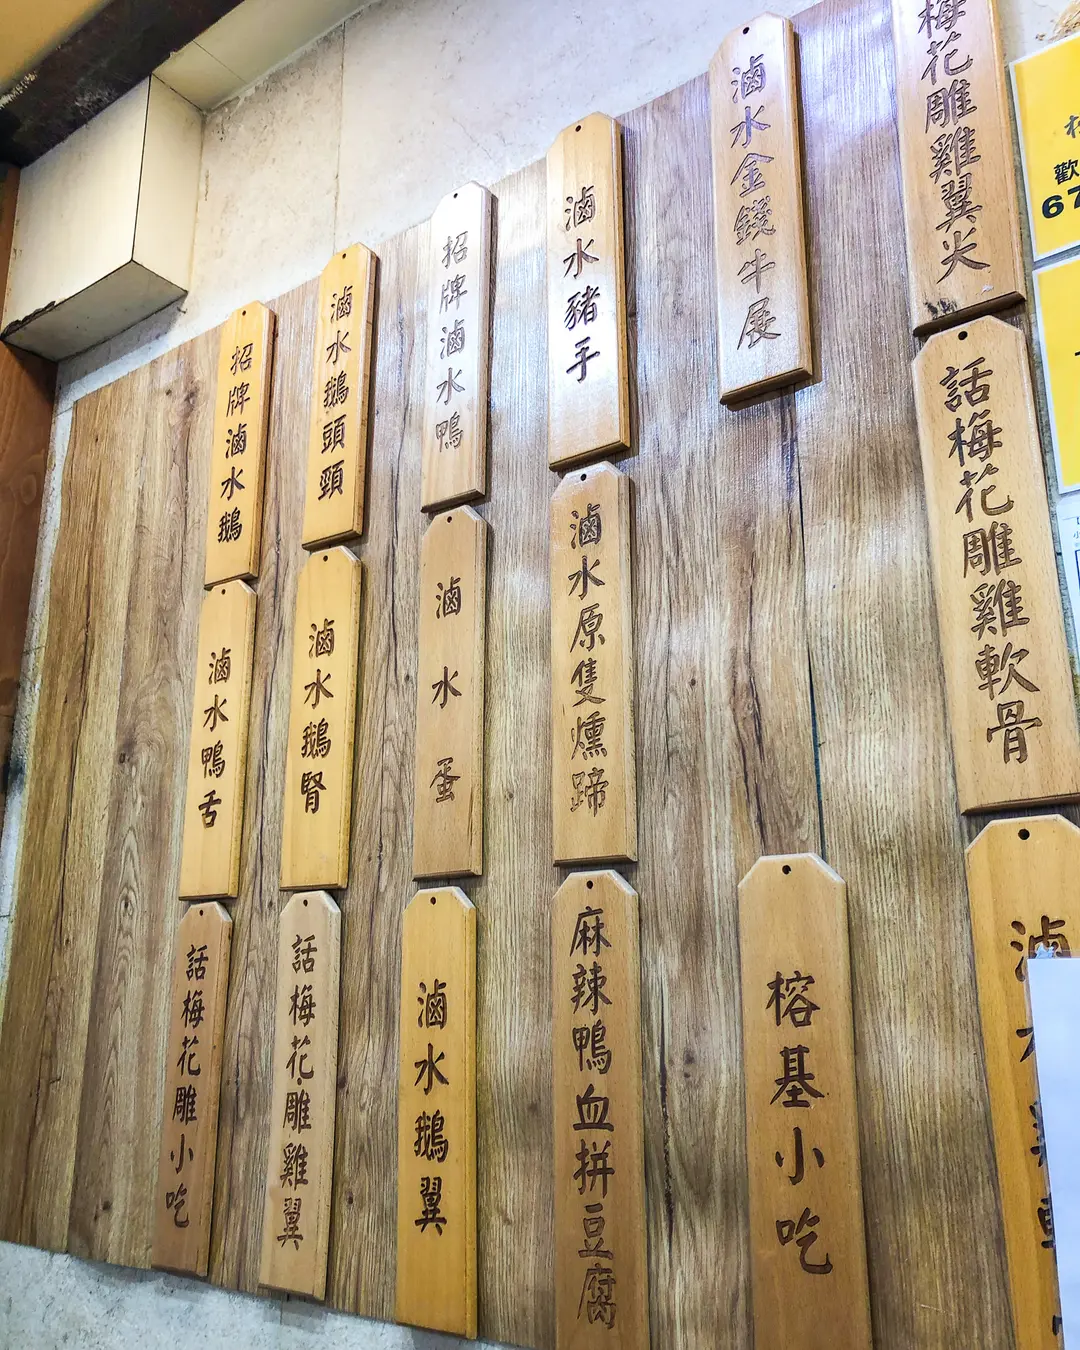 招牌滷水鵝
滷水鵝頭頸
招牌滷水鴨
滷水豬手
滷水金錢牛展
梅花雕雞翼尖
滷水鴨舌
滷水鵝腎
滷水蛋
滷水原隻燻蹄
話梅花雕雞軟骨
話梅花雕小吃
話梅花雕雞翼
滷水鵝翼
麻辣鴨血拼豆腐
榕基小吃
滷水
歡
67